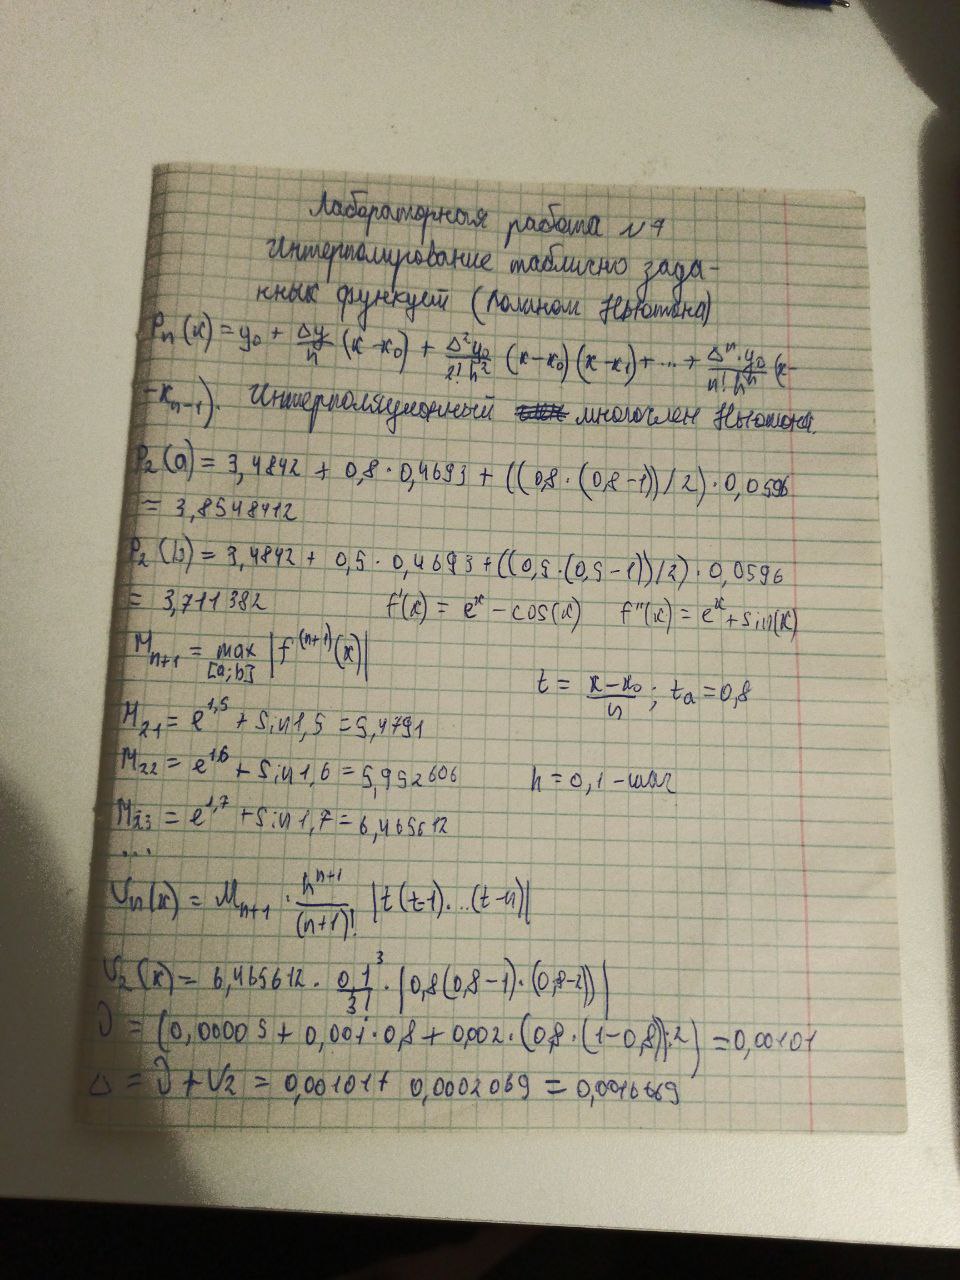 Лабораторная работа №7
Интерполирование таблично зада-
нных функций (Полином Ньютона)
Pₙ(x) = y₀ + Δy/h (x-x₀) + Δ²y₀/2!h² (x-x₀)(x-x₁)+...+ Δⁿ·y₀/n!hⁿ (x-
-xₙ₋₁). Интерполяционный многочлен Ньютона.
P₂(a) = 3,4842 + 0,8·0,4693 + ((0,8·(0,8-1))/2)·0,0596
= 3,8548412
P₂(b) = 3,4842 + 0,5·0,4693+((0,5·(0,5-1))/2)·0,0596
= 3,711382 f'(x) = eˣ - cos(x) f"(x) = eˣ+sin(x)
Mₙ₊₁ = max [a;b] |f⁽ⁿ⁺¹⁾(x)|
t = x-x₀/h ; tₐ=0,8
M₂₁ = e^1,5 + sin1,5 = 5,4791
M₂₂ = e^1,6 + sin1,6 = 5,952606 h = 0,1 - шаг
M₂₃ = e^1,7 + sin1,7 = 6,465612
...
Vₙ(x) = Mₙ₊₁ · hⁿ⁺¹/(n+1)! |t(t-1)...(t-n)|
V₂(x) = 6,465612 · 0,1³/3! · |0,8(0,8-1)·(0,8-2))|
∂ = (0,00005 + 0,001·0,8 + 0,002·(0,8·(1-0,8)):2) = 0,00101
Δ = ∂ + V₂ = 0,00101+ 0,0002069 = 0,0016669